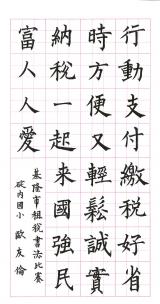 行動支付繳稅好省
時方便又輕鬆誠實
納稅一起來國強民
富人人愛
基隆市租稅書法比賽
碇內國小 歐友倫